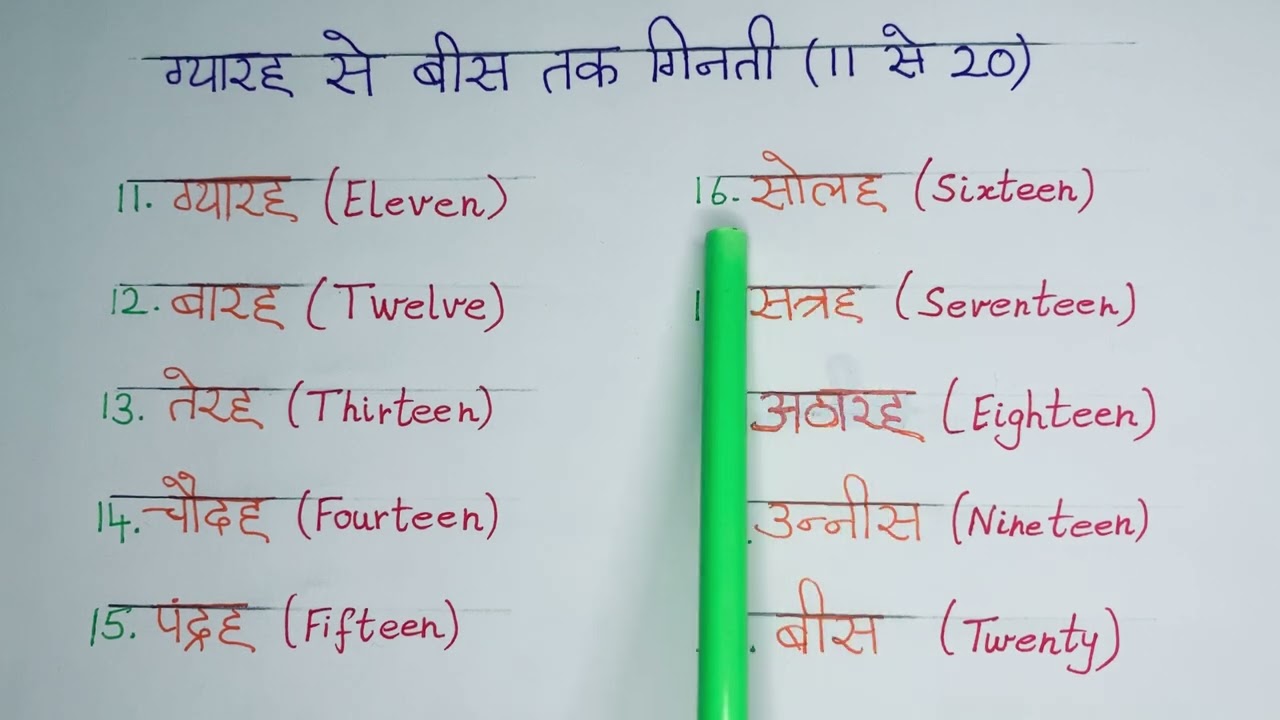 ग्यारह से बीस तक गिनती (11 से 20)
11. ग्यारह (Eleven)
12. बारह (Twelve)
13. तेरह (Thirteen)
14. चौदह (Fourteen)
15. पंद्रह (Fifteen)
16. सोलह (Sixteen)
सत्रह (Seventeen)
अठारह (Eighteen)
उन्नीस (Nineteen)
बीस (Twenty)